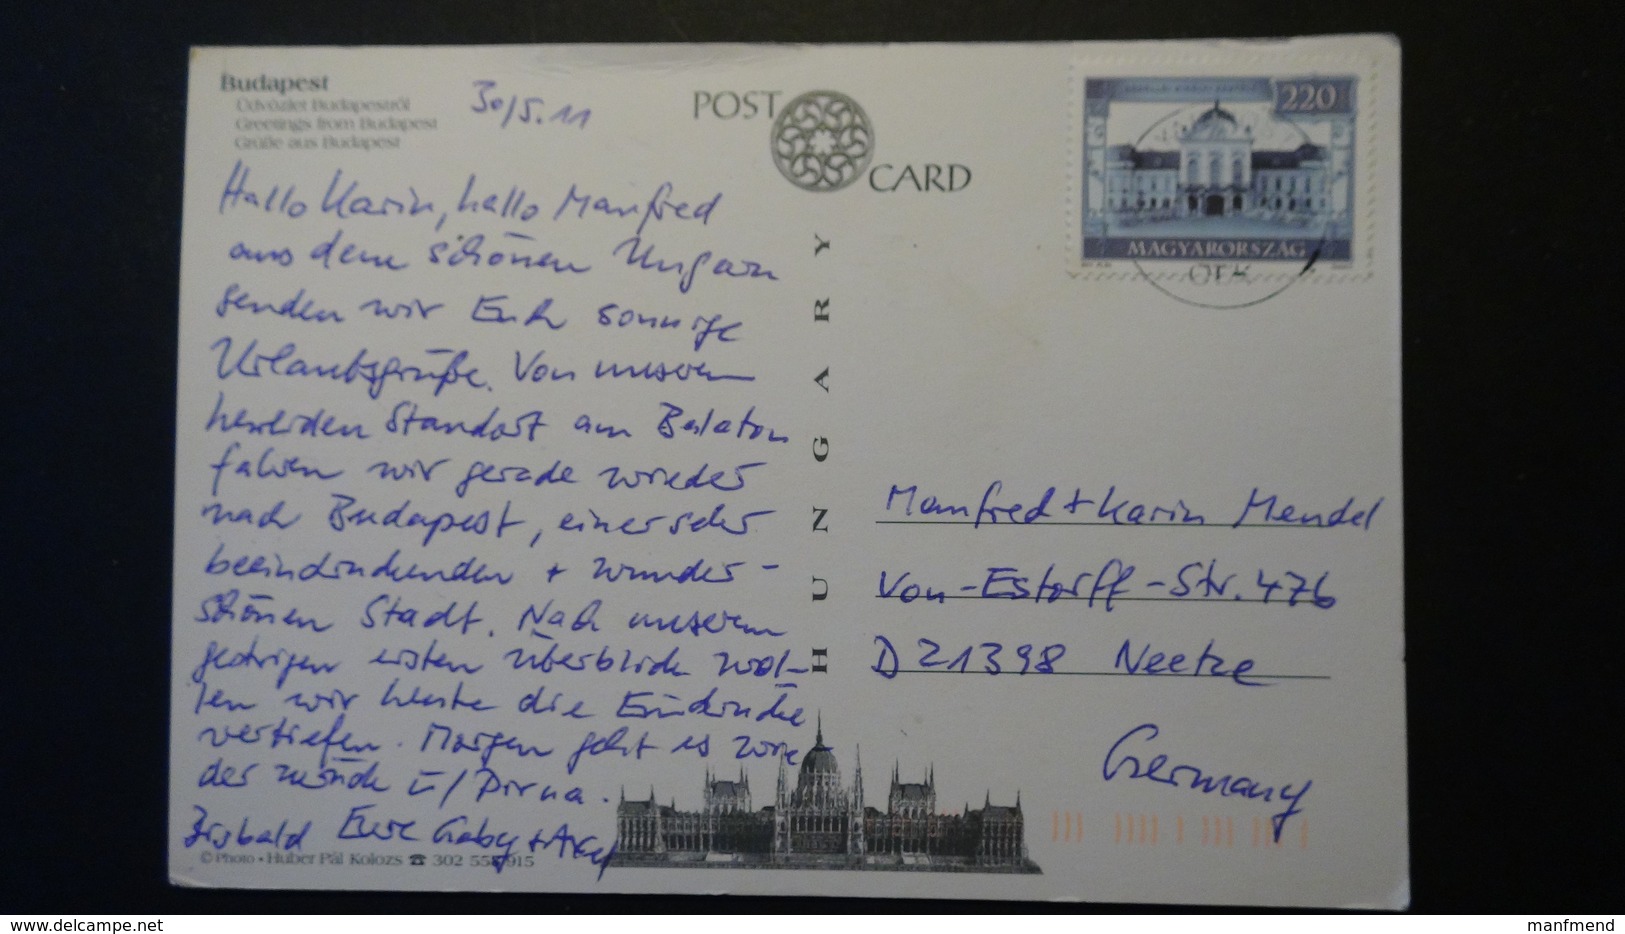 Budapest
Üdvözlet Budapestről
Greetings from Budapest
Grüße aus Budapest
30/5.11
POST CARD
220
MAGYARORSZÁG
HUNGARY
Hallo Karin, hallo Manfred
aus dem schönen Ungarn
senden wir Euch sonnige
Urlaubsgrüße. Von unserem
Standort am Balaton
fahren wir gerade wieder
nach Budapest, einer sehr
beeindruckenden + wunder-
schönen Stadt. Nach unserem
gestrigen ersten Überblick wol-
len wir heute die Eindrücke
vertiefen. Morgen geht es wie-
der zurück ü/ Pirna.
Bis bald Eure Gaby + Axel
© Photo • Huber Pál Kolozs ☎ 302 558 915
Manfred + Karin Mendel
Von-Estorff-Str. 47b
D 21398 Neetze
Germany
www.delcampe.net
manfmend